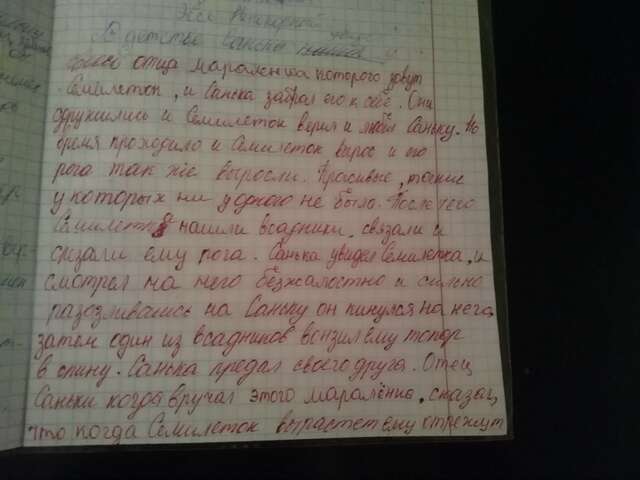 Эссе
В детстве Санька у
своего отца мараленка которого зовут
Семилеток, и Санька забрал его к себе. Они
сдружились и Семилеток верил и любил Саньку. Но
время проходило и Семилеток вырос и его
рога так же выросли. Красивые, такие
у которых ни у одного не было. После чего
Семилетка нашли всадники, связали и
срезали ему рога. Санька увидел Семилетка, и
смотрел на него безжалостно и сильно
разозлившись на Саньку он кинулся на него
затем один из всадников вонзил ему топор
в спину. Санька предал своего друга. Отец
Саньки когда вручал этого мараленка, сказал,
что когда Семилеток вырастет ему отрежут